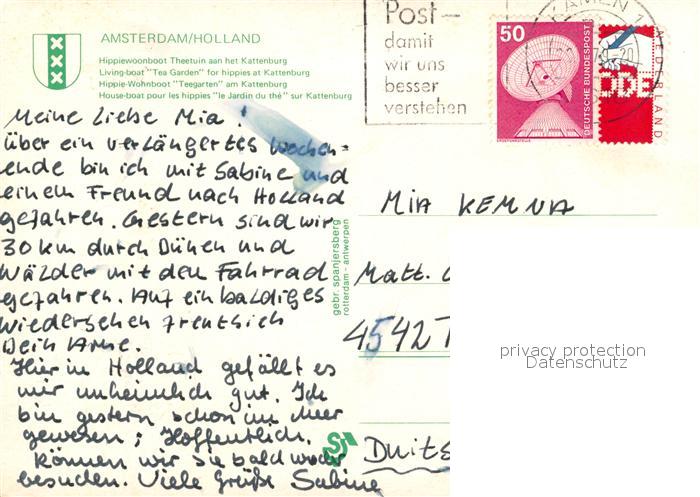 AMSTERDAM/HOLLAND
Hippiewoonboot Theetuin aan het Kattenburg
Living-boat "Tea Garden" for hippies at Kattenburg
Hippie-Wohnboot "Teegarten" am Kattenburg
House-boat pour les hippies "le Jardin du thé" sur Kattenburg
Post-
damit
wir uns
besser
verstehen
50
DEUTSCHE BUNDESPOST
ERDEFUNKSTELLE
KAMEN 1
NEDERLAND
ODE
Meine Liebe Mia!
Über ein verlängertes Wochen=
ende bin ich mit Sabine und
einem Freund nach Holland
gefahren. Gestern sind wir
30 km durch Dünen und
Wälder mit den Fahrrad
gefahren. Auf ein baldiges
Wiedersehen freut sich
Dein Arne.
Hier in Holland gefällt es
mir unheimlich gut. Ich
bin gestern schon im Meer
gewesen; Hoffentlich
können wir sie bald wieder
besuchen. Viele Grüße Sabine
gebr. spanjersberg
rotterdam - antwerpen
MIA KEMNA
Matt.
4542 T
Duits
privacy protection
Datenschutz